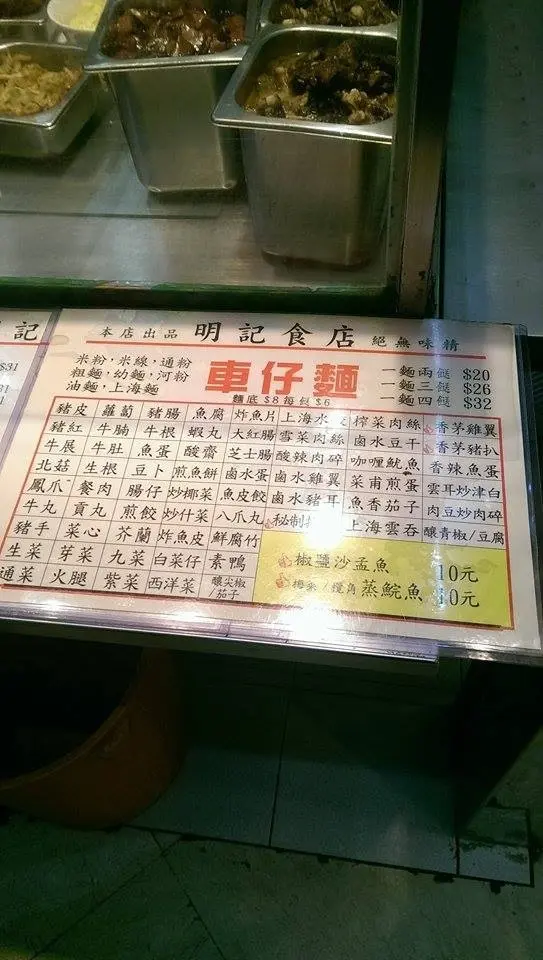 記
$31
本店出品 明記食店 絕無味精
米粉,米線,通粉
粗麵,幼麵,河粉
油麵,上海麵
車仔麵
麵底 $8 每餸 $6
一麵兩餸 $20
一麵三餸 $26
一麵四餸 $32
豬皮 蘿蔔 豬腸 魚腐 炸魚片 上海水 榨菜肉絲 香茅雞翼
豬紅 牛腩 牛根 蝦丸 大紅腸 雪菜肉絲 鹵水豆干 香茅豬扒
牛展 牛肚 魚蛋 酸齋 芝士腸 酸辣肉碎 咖喱魷魚 香辣魚蛋
北菇 生根 豆卜 煎魚餅 鹵水蛋 鹵水雞翼 菜甫煎蛋 雲耳炒津白
鳳爪 餐肉 腸仔 炒椰菜 魚皮餃 鹵水豬耳 魚香茄子 肉豆炒肉碎
牛丸 貢丸 煎餃 炒什菜 八爪丸 秘制 上海雲吞 釀青椒/豆腐
豬手 菜心 芥蘭 炸魚皮 鮮腐竹
生菜 芽菜 九菜 白菜仔 素鴨
通菜 火腿 紫菜 西洋菜 釀尖椒/茄子
椒鹽沙孟魚 10元
梅菜/欖角蒸鯇魚 10元